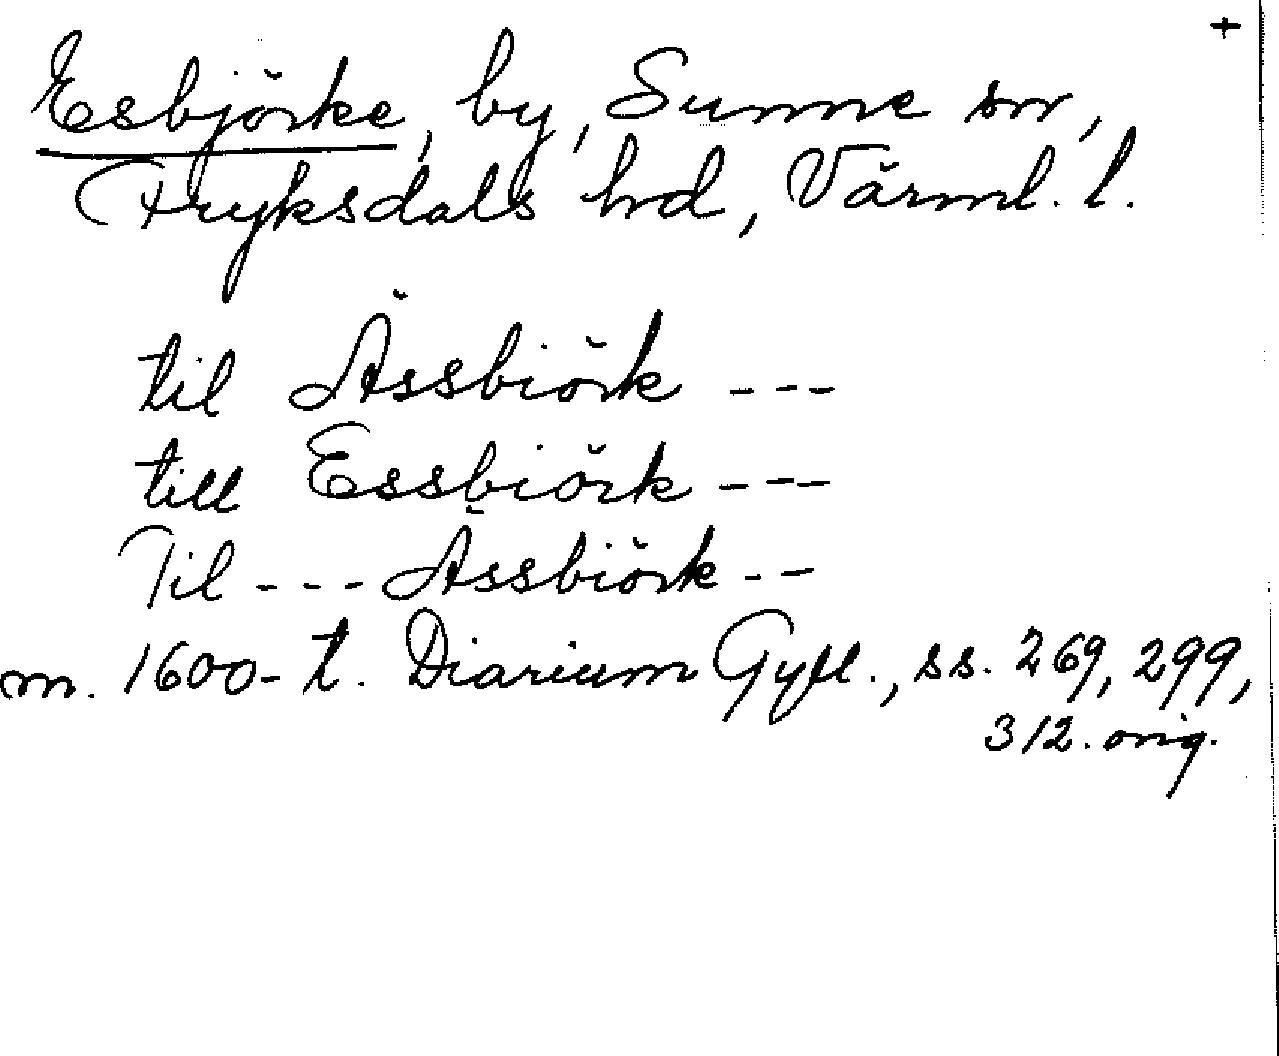 +
Esbjörke, by, Sunne sn,
Fryksdals hd, Värml. l.
til Ässbiörk ---
till Essbiörk ---
Til --- Ässbiörk --
m. 1600-t. Diarium Gyll., ss. 269, 299,
312. orig.